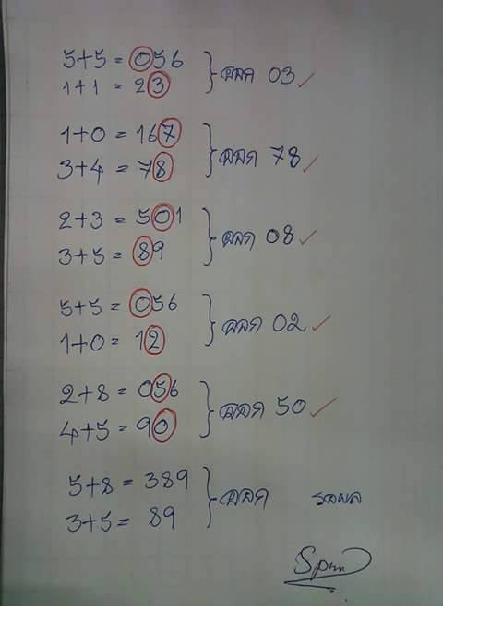 5+5 = 056
1+1 = 23
ออก 03
1+0 = 167
3+4 = 78
ออก 78
2+3 = 501
3+5 = 89
ออก 08
5+5 = 056
1+0 = 12
ออก 02
2+8 = 056
4+5 = 90
ออก 50
5+8 = 389
3+5 = 89
ออก รอผล